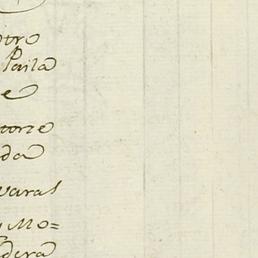 otro
Paila
e
torze
da
varas
y Mo=
dera